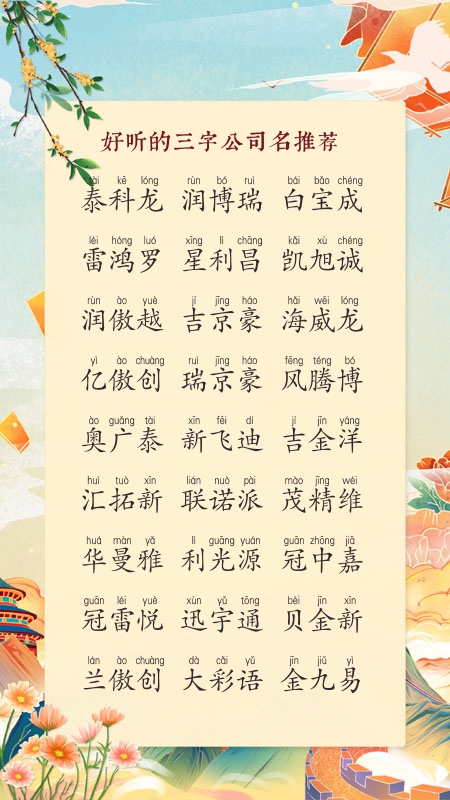 好听的三字公司名推荐
tài kē lóng rùn bó ruì bái bǎo chéng
泰科龙 润博瑞 白宝成
léi hóng luó xīng lì chāng kǎi xù chéng
雷鸿罗 星利昌 凯旭诚
rùn ào yuè jí jīng háo hǎi wēi lóng
润傲越 吉京豪 海威龙
yì ào chuàng ruì jīng háo fēng téng bó
亿傲创 瑞京豪 风腾博
ào guǎng tài xīn fēi dí jí jīn yáng
奥广泰 新飞迪 吉金洋
huì tuò xīn lián nuò pài mào jīng wéi
汇拓新 联诺派 茂精维
huá màn yǎ lì guāng yuán guān zhōng jiā
华曼雅 利光源 冠中嘉
guān léi yuè xùn yǔ tōng bèi jīn xīn
冠雷悦 迅宇通 贝金新
lán ào chuàng dà cǎi yǔ jīn jiǔ yì
兰傲创 大彩语 金九易